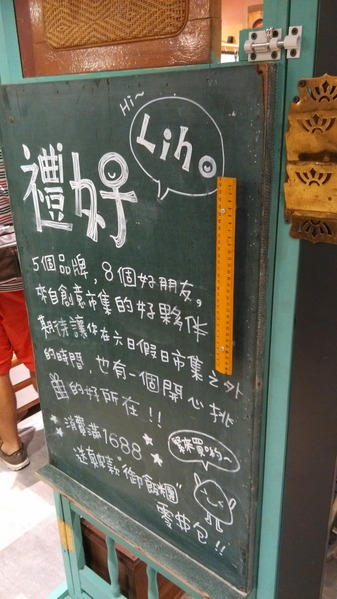 Hi~
Liho
禮好
5個品牌,8個好朋友,
來自創意市集的好夥伴
期待讓你在六日假日市集之外
的時間,也有一個開心挑
的好所在!!
消費滿1688
緊來買喲~
送朝款"御飯櫃"
零錢包!!